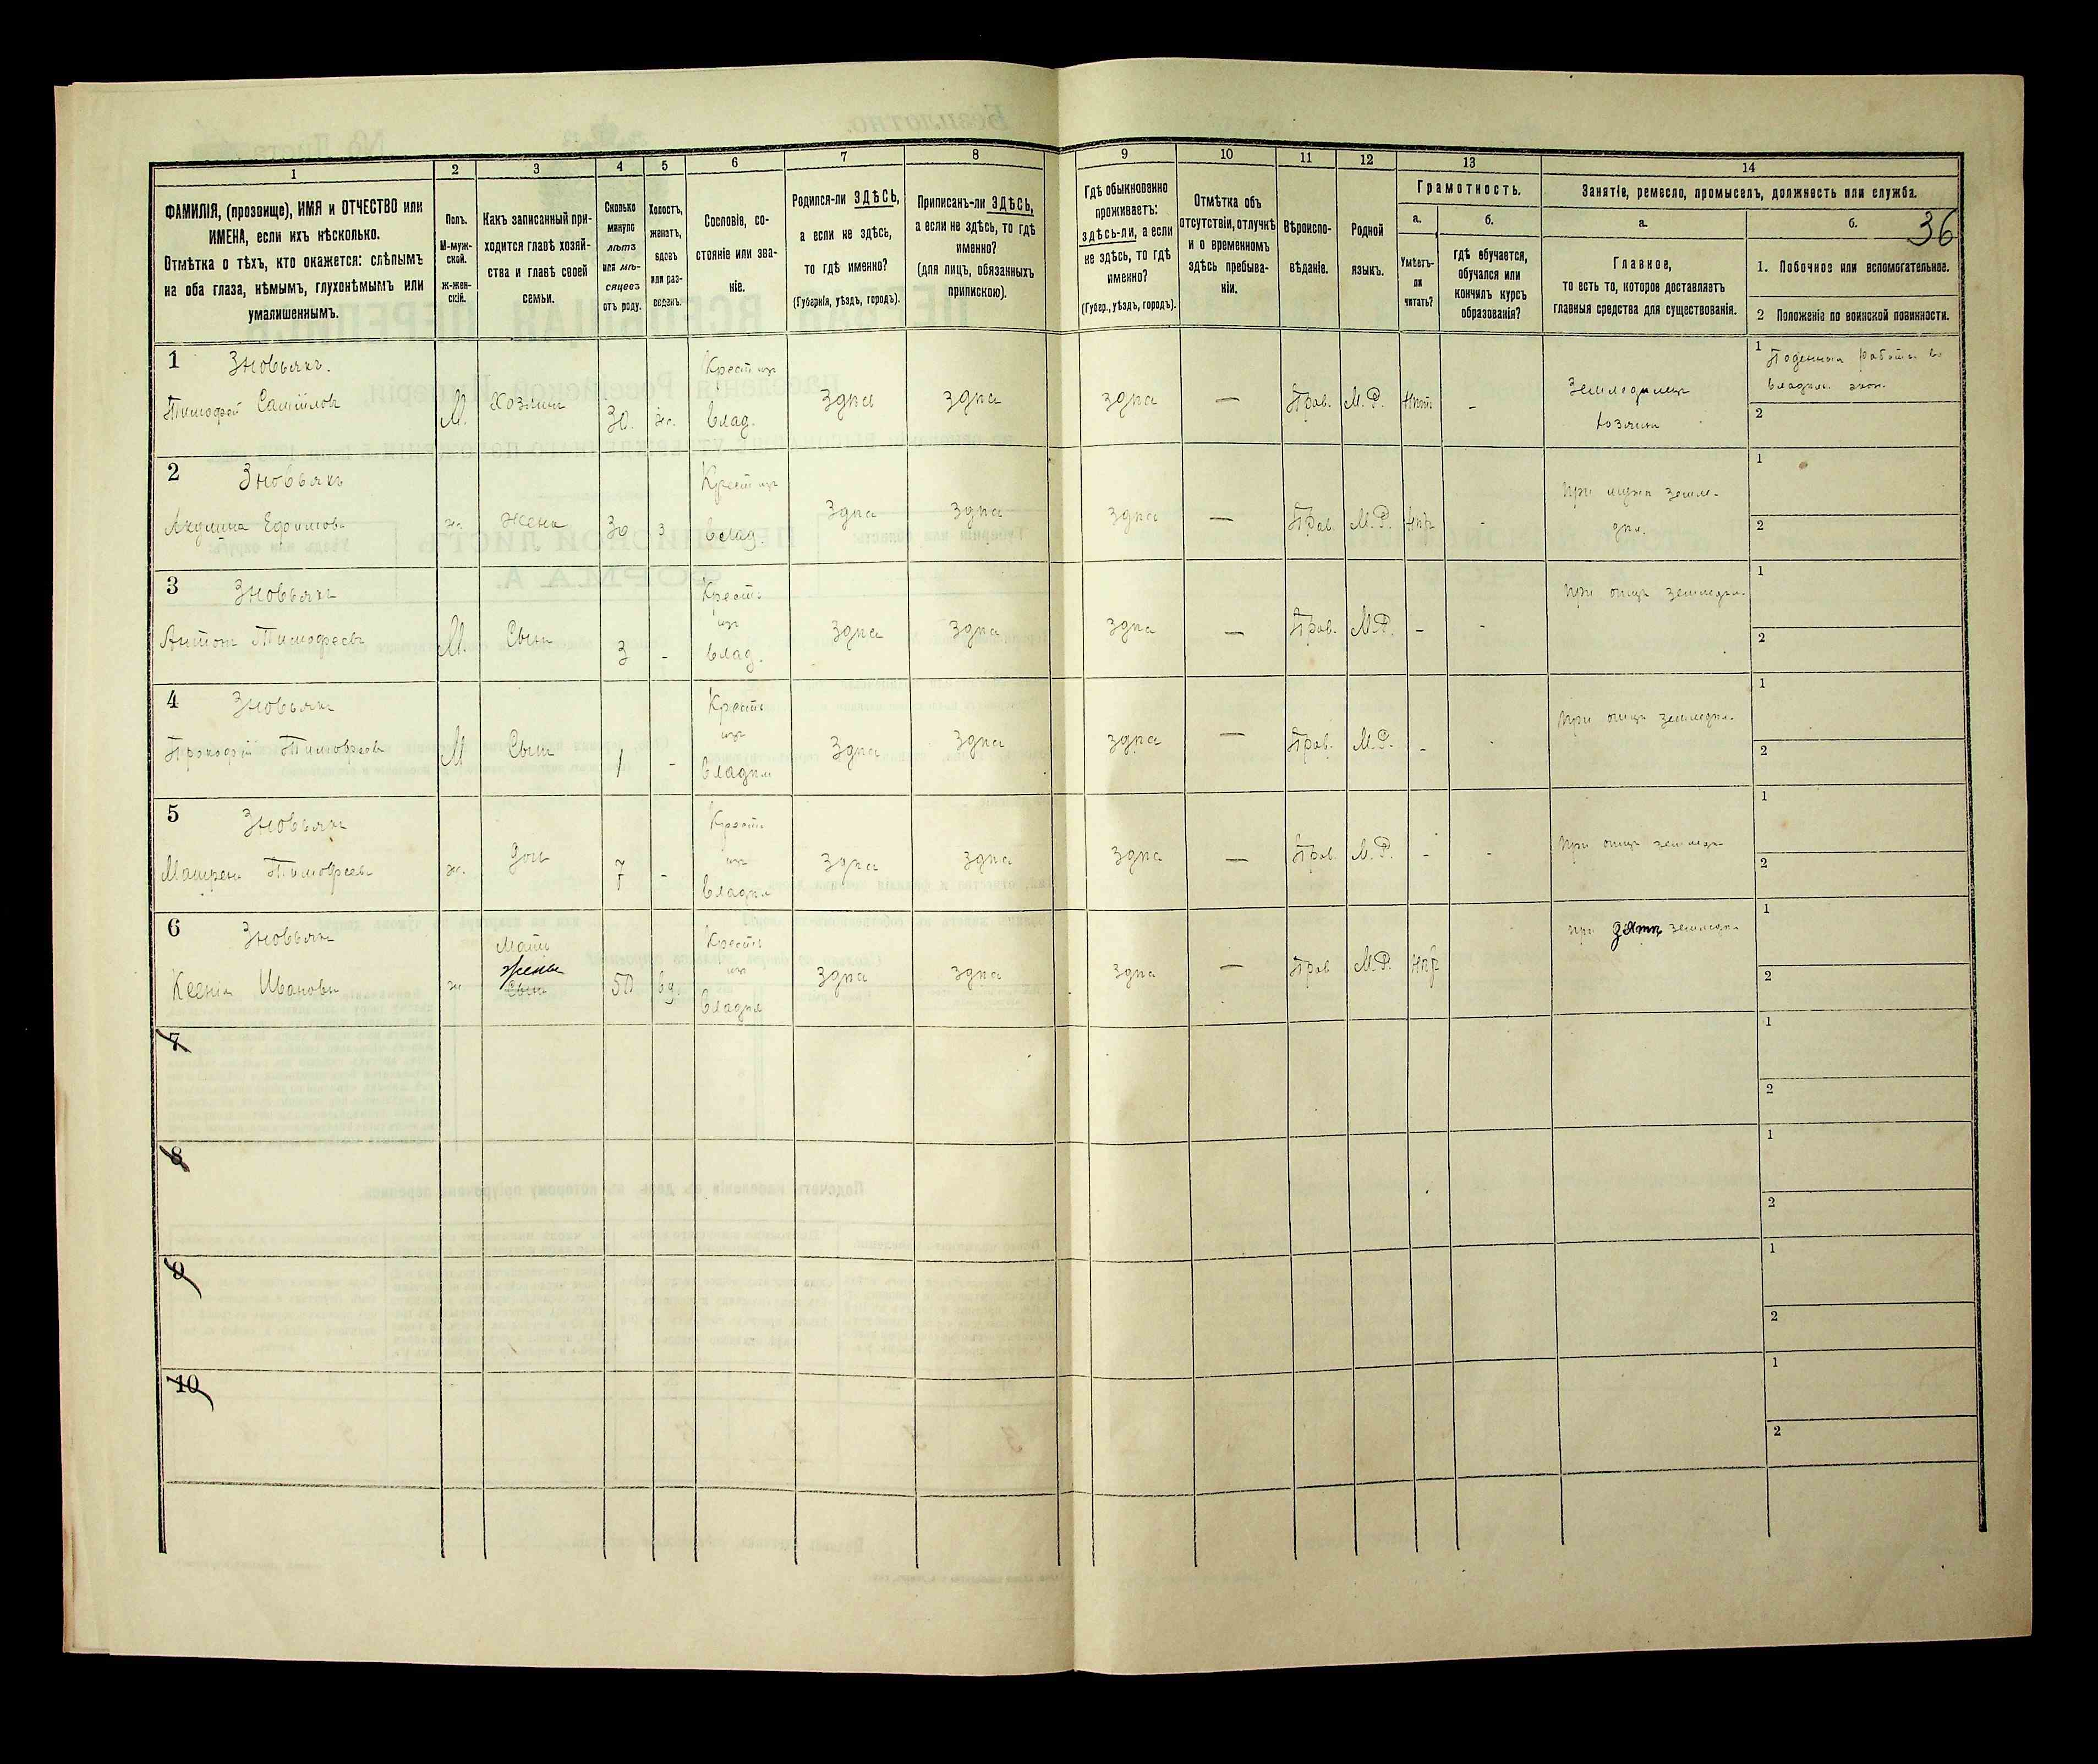 36
1 2 3 4 5 6 7 8 9 10 11 12 13 14
ФАМИЛІЯ, (прозвище), ИМЯ и ОТЧЕСТВО или
ИМЕНА, если ихъ нѣсколько.
Отмѣтка о тѣхъ, кто окажется: слѣпымъ
на оба глаза, нѣмымъ, глухонѣмымъ или
умалишеннымъ.
Полъ.
М-муж-
ской.
ж-жен-
скій.
Какъ записанный при-
ходится главѣ хозяй-
ства и главѣ своей
семьи.
Сколько
минуло
лѣтъ
или мѣ-
сяцевъ
отъ роду.
Холостъ,
женатъ,
вдовъ
или раз-
веденъ.
Сословіе, со-
стояніе или зва-
ніе.
Родился-ли ЗДѢСЬ,
а если не здѣсь,
то гдѣ именно?
(Губернія, уѣздъ, городъ).
Приписанъ-ли ЗДѢСЬ,
а если не здѣсь, то гдѣ
именно?
(для лицъ, обязанныхъ
припискою).
Гдѣ обыкновенно
проживаетъ:
здѣсь-ли, а если
не здѣсь, то гдѣ
именно?
(Губер., уѣздъ, городъ).
Отмѣтка объ
отсутствіи, отлучкѣ
и о временномъ
здѣсь пребыва-
ніи.
Вѣроиспо-
вѣданіе.
Родной
языкъ.
Грамотность.
а.
Умѣетъ-
ли
читать?
б.
гдѣ обучается,
обучался или
кончилъ курсъ
образованія?
Занятіе, ремесло, промыселъ, должность или служба.
а.
Главное,
то есть то, которое доставляетъ
главныя средства для существованія.
б.
1. Побочное или вспомогательное.
2 Положеніе по воинской повинности.
1 Зновьякъ.
Тимофей Самойловъ М. Хозяинъ 30. ж. Крест изъ
влад. здѣсь здѣсь здѣсь — Прав. М.Р. нѣтъ -
Земледѣлецъ
хозяинъ
1 Поденная работа въ
владѣл. экон.
2
2 Зновьякъ
Акулина Ефимова ж. Жена 30 з Крест изъ
влад. здѣсь здѣсь здѣсь — Прав. М.Р. -
При мужѣ земле-
дѣл.
1
2
3 Зновьякъ
Антонъ Тимофеевъ М. Сынъ 3 - Крестъ
изъ
влад. здѣсь здѣсь здѣсь — Прав. М.Р. - -
При отцѣ земледѣл.
1
2
4 Зновьякъ
Прокофій Тимофеевъ М Сынъ 1 - Крестъ
изъ
владѣл здѣсь здѣсь здѣсь — Прав. М.Р. - -
При отцѣ земледѣл.
1
2
5 Зновьякъ
Тимофеева ж. доч 7 - Крестъ
изъ
владѣл здѣсь здѣсь здѣсь — Прав. М.Р. - -
При отцѣ земледѣл
1
2
6 Зновьякъ
Ксенія Иванова ж Мать
жены 50 вд. Крестъ
изъ
владѣл здѣсь здѣсь здѣсь — Прав М.Р.
при зятѣ земледѣл
1
2
7
1
2
8
1
2
9
1
2
10
1
2